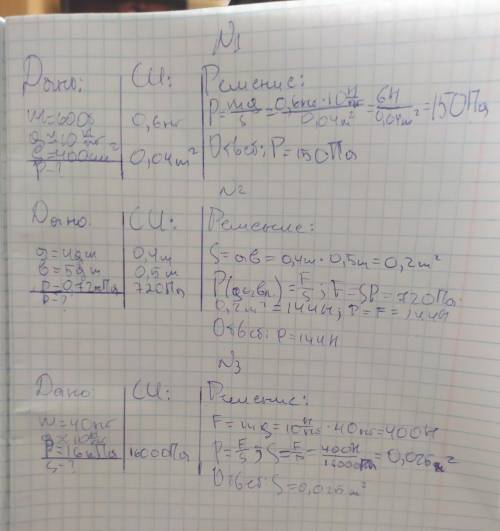 N1
Дано: СИ: Решение:
m=600г 0,6кг P=mg/S=0,6кг·10Н/кг/0,04m²=6Н/0,04m²=150Па
g=10Н/кг
S=400см² 0,04m² Ответ: P=150Па
P-?
N2
Дано. СИ: Решение:
a=4дm 0,4m S=ab=0,4m·0,5m=0,2m²
b=5дm 0,5m
p=0,72кПа 720Па P(давл.)=F/S; F=SP=720Па·
P-? 0,2m²=144Н; P=F=144Н
Ответ: P=144Н
N3
Дано СИ: Решение:
m=40кг F=mg=10Н/кг·40кг=400Н
g=10Н/кг
P=16кПа 16000Па P=F/S; S=F/P=400Н/16000Па=0,025m²
S-?
Ответ: S=0,025m²